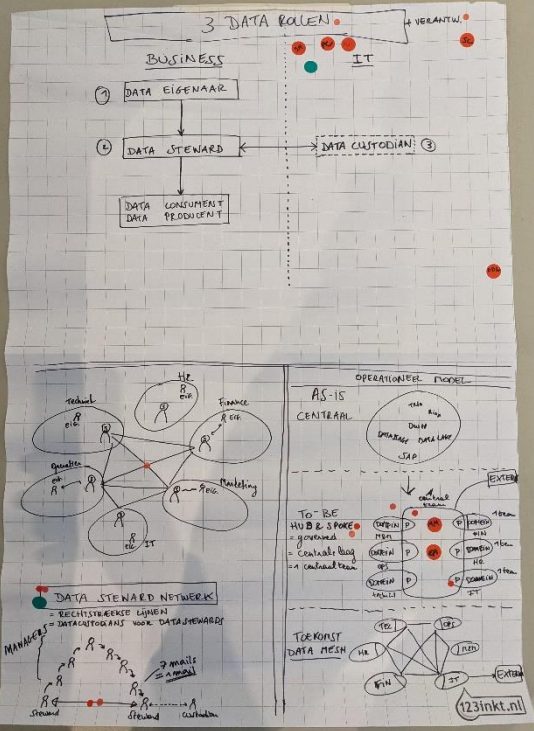 3 DATA ROLLEN
+ VERANTW.
BUSINESS
IT
1 DATA EIGENAAR
2 DATA STEWARD
DATA CUSTODIAN 3
DATA CONSUMENT
DATA PRODUCENT
HR
EIG.
Techniek
EIG.
Finance
EIG.
Operaties
EIG.
Marketing
EIG.
EIG.
IT
DATA STEWARD NETWERK
= RECHTSTREEKSE LIJNEN
= DATACUSTODIANS VOOR DATASTEWARDS
MANAGERS
7 mails
= 1 mail
Steward
Steward
Custodian
OPERATIONEEL MODEL
AS-IS
CENTRAAL
DWH
DATABASE DATA LAKE
SAP
centraal
team
EXTERN
TO-BE
HUB & SPOKE
= governed
= centrale laag
= 1 centraal team
DOMEIN P
P DOMEIN
1 team
FIN
DOMEIN P
P DOMEIN
1 team
OPS
HR
DOMEIN
P DOMEIN
1 team
IT
TOEKOMST
DATA MESH
TEC
OPS
HR
FIN
IT
EXTERN
123inkt.nl